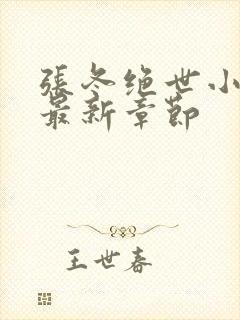 張冬绝世小
最新章節
王世春